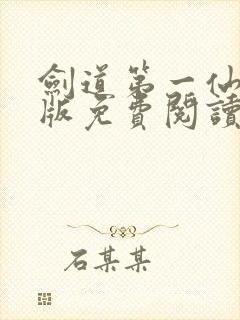 劍道第一仙
版免費閱讀
石某某